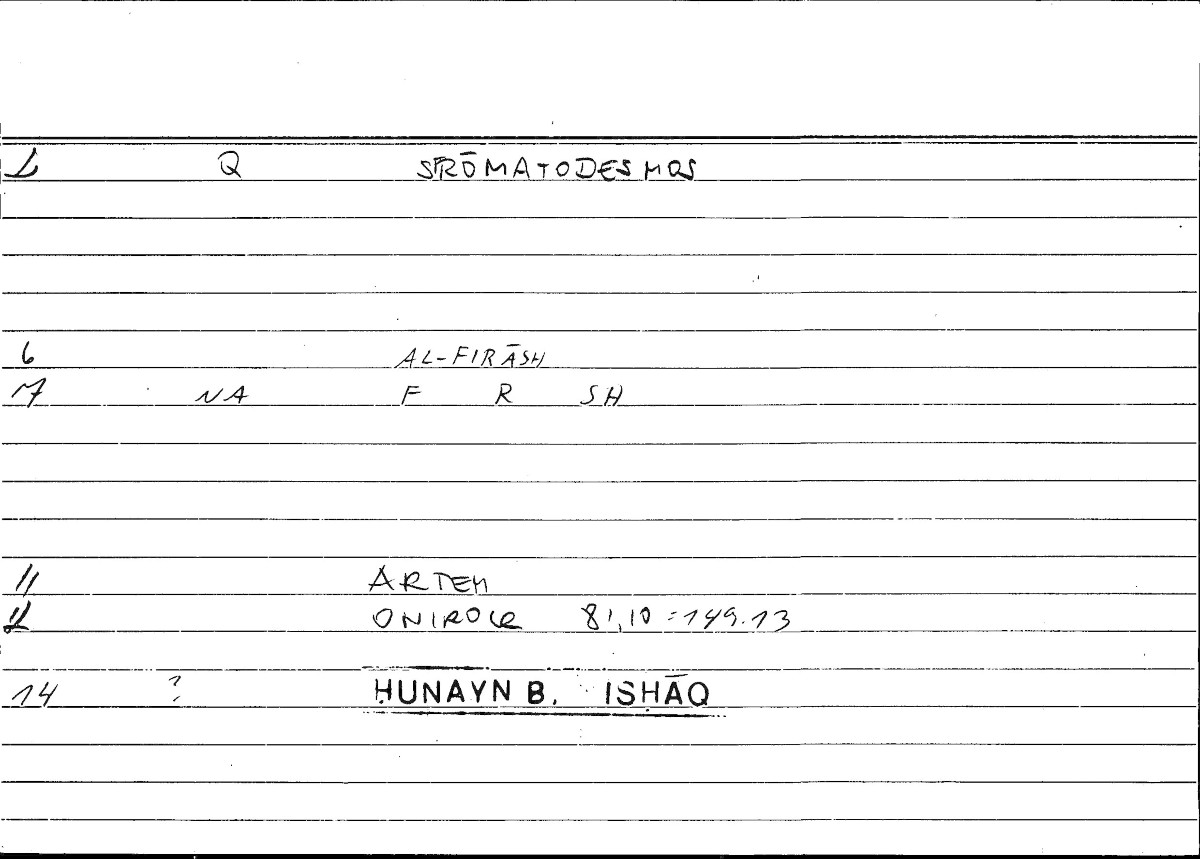 1 Q STRŌMATODESMOS
6 AL-FIRĀSH
7 NA F R SH
11 ARTEM
12 ONIROCR 81,10 = 149.13
14 ? ḤUNAYN B. ISḤĀQ